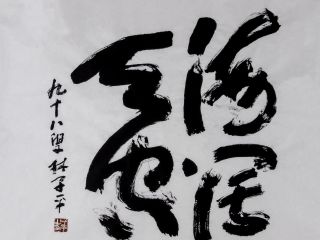 海阔
天空
九十八叟林子平